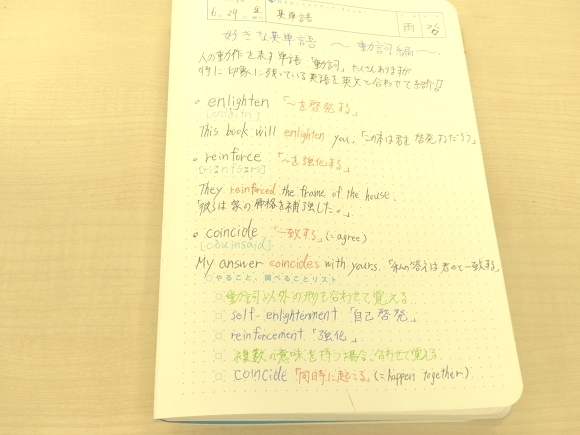 6.29 金 英単語 雨
好きな英単語 ～動詞編～
人の動作を表す単語「動詞」たくさんありますが
特に印象に残っている英語を英文と合わせて紹介!!
enlighten 「～を啓発する」
This book will enlighten you.「この本は君を啓発するだろう」
reinforce 「～を強化する」
They reinforced the frame of the house.
「彼らは家の骨格を補強した。」
coincide 「一致する」(= agree)
My answer coincides with yours.「私の答えは君のと一致する」
やること、調べることリスト
動詞以外の形も合わせて覚える
self-enlightenment 「自己啓発」
reinforcement 「強化」
複数の意味を持つ場合、合わせて覚える
coincide 「同時に起こる」(= happen together)